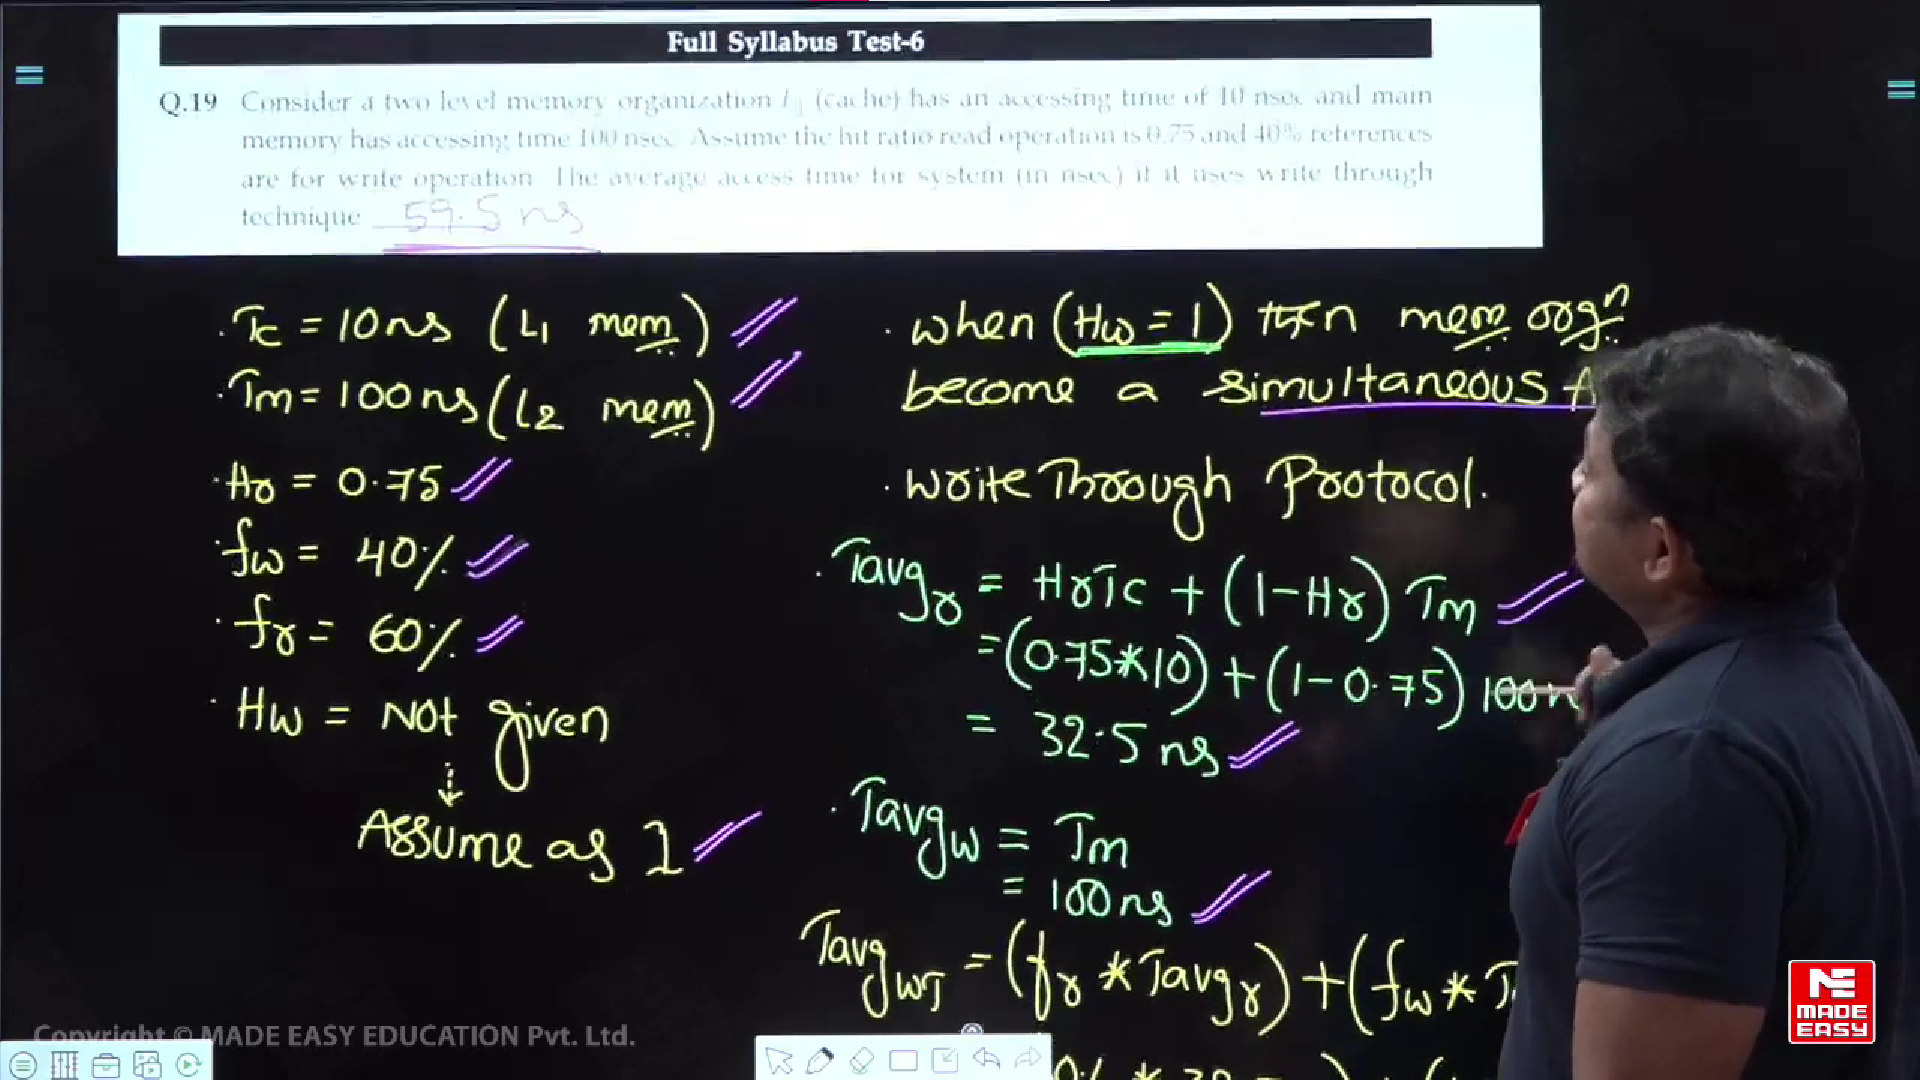 Full Syllabus Test-6
Q.19 Consider a two level memory organization L1 (cache) has an accessing time of 10 nsec and main
memory has accessing time 100 nsec. Assume the hit ratio read operation is 0.75 and 40% references
are for write operation. The average access time for system (in nsec) if it uses write through
technique 59.5 ns
. Tc = 10ns (L1 mem)
. Tm = 100ns (L2 mem)
. Hr = 0.75
. fw = 40%
. fr = 60%
. Hw = Not given
Assume as 1
. when (Hw = 1) then mem orgn
become a simultaneous
. Write Through Protocol.
. Tavgr = HrTc + (1-Hr) Tm
= (0.75*10) + (1-0.75) 100n
= 32.5 ns
. Tavgw = Tm
= 100ns
TavgWT = (fr * Tavgr) + (fw * T
Copyright © MADE EASY EDUCATION Pvt. Ltd.
ME
MADE
EASY